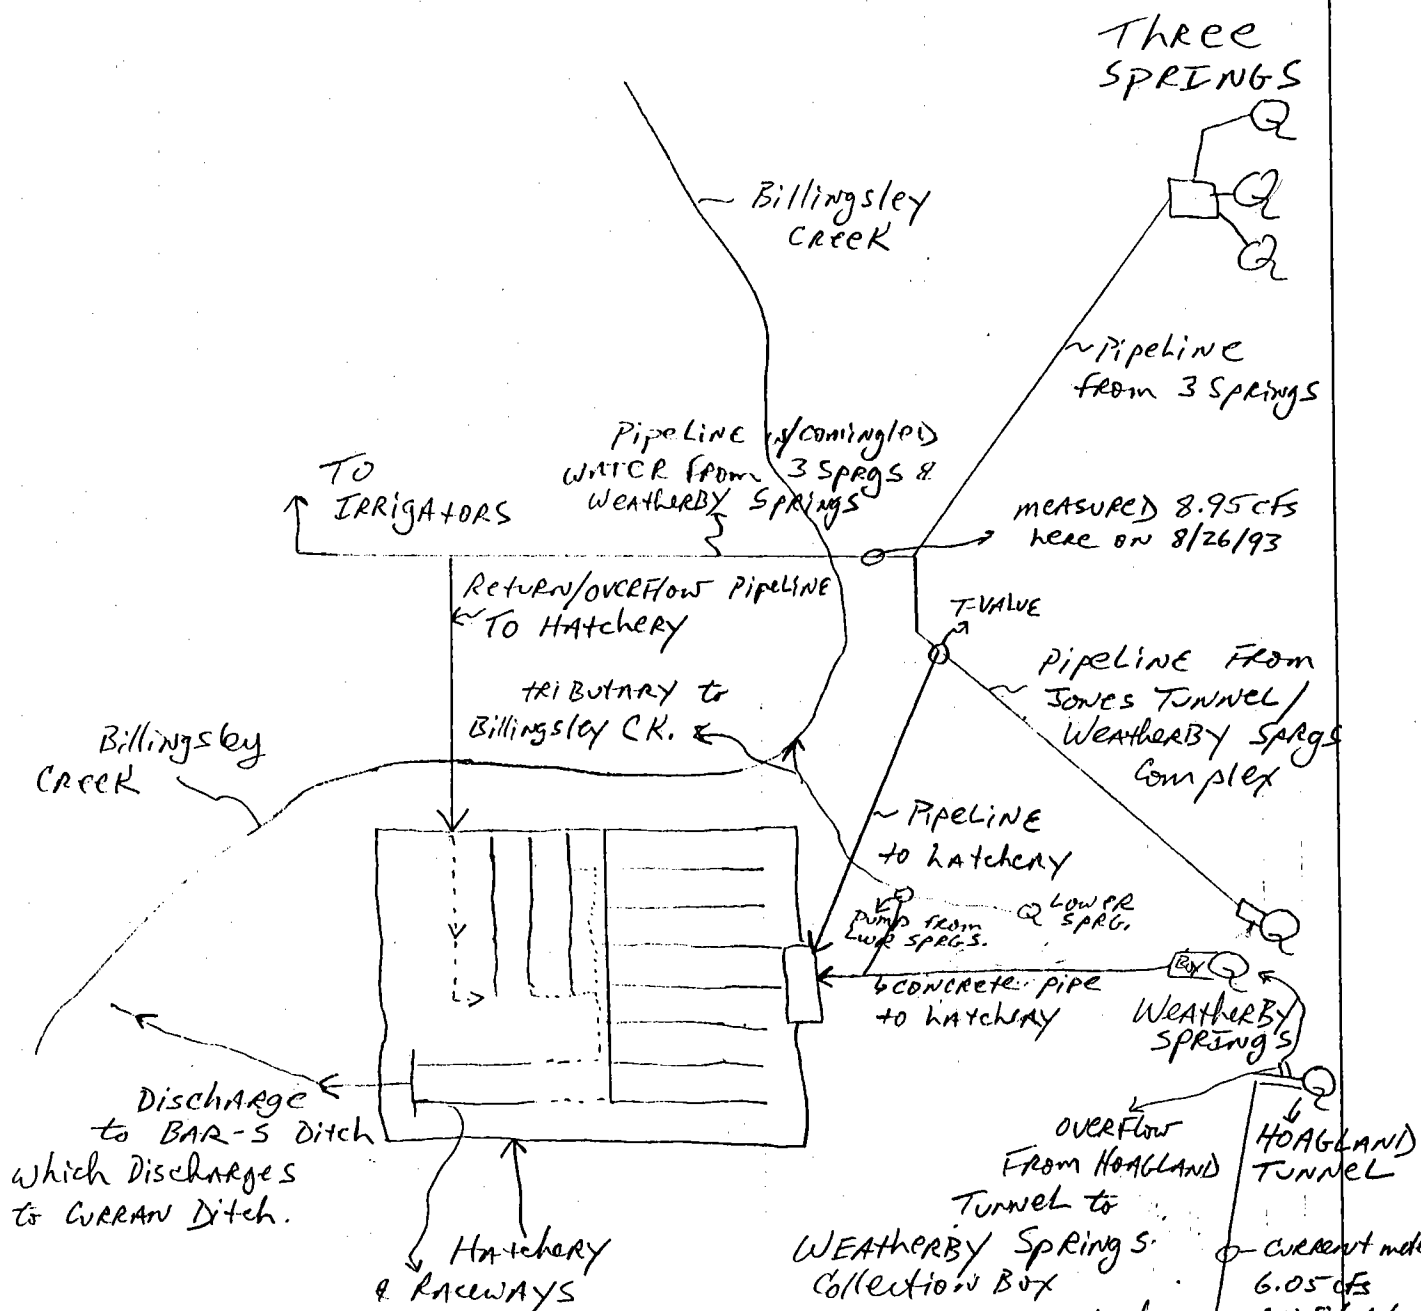 Three
SPRINGS
Billingsley
Creek
Pipeline
from 3 Springs
Pipeline w/comingled
water from 3 Sprgs &
Weatherby Springs
TO
IRRIGATORS
MEASURED 8.95 cfs
here on 8/26/93
Return/overflow Pipeline
To Hatchery
T-VALUE
Pipeline From
Jones Tunnel/
Weatherby Sprgs
Complex
tributary to
Billingsley CK.
Billingsley
Creek
Pipeline
to hatchery
Lower
Sprg.
Pump from
Lwr Sprgs.
Box
Concrete pipe
to hatchery
Weatherby
Springs
Discharge
to BAR-S Ditch
which Discharges
to CURRAN Ditch.
overflow
From HOAGLAND
Tunnel to
WEATHERBY SPRINGS
Collection Box
HOAGLAND
TUNNEL
Hatchery
& RACEWAYS
Current
6.05 cfs